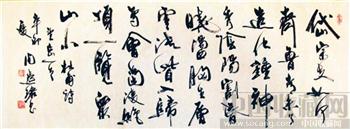 岱宗夫如何
齊魯青未了
造化鍾神
秀陰陽割昏
曉盪胸生層
雲決眥入歸
鳥會當凌絕
頂一覽眾
山小杜甫詩
辛卯
www.socang.com